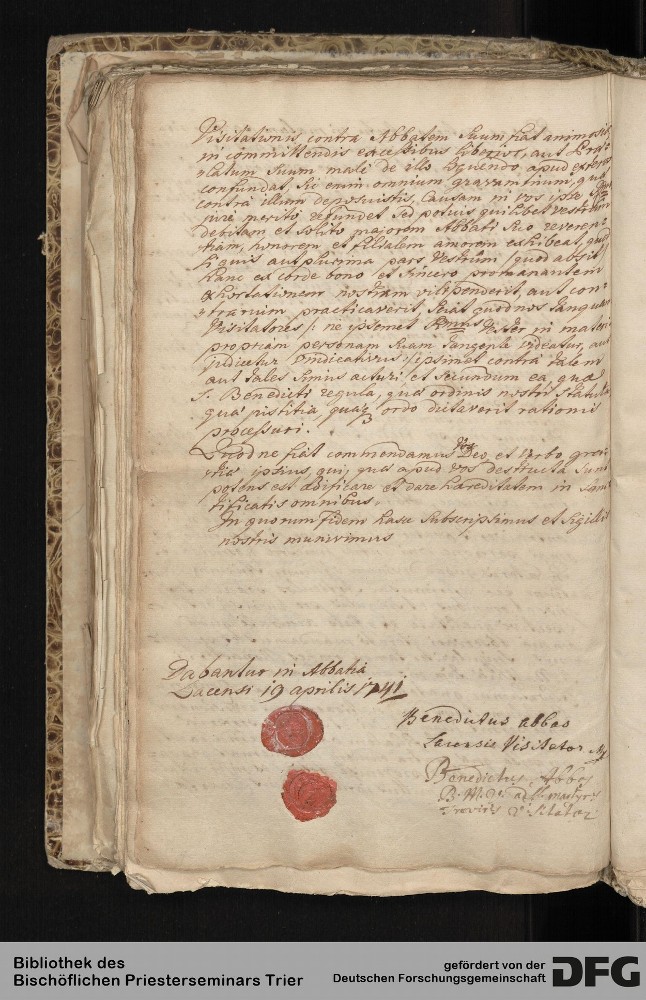 Visitationis contra Abbatem suum fiat animosior
in committendis excessibus liberior, aut Præ=
latum suum male de illo loquendo apud exteros
confundat, sic enim omnium gravaminum, quæ
contra illum deposuistis, causam in vos ipse
jure merito refundet sed potius quilibet vestrum
debitam et solito majorem Abbati suo reveren=
tiam, honorem et filialem amorem exhibeat, quod
si quis aut plurima pars vestrum /: quod absit :/
hanc ex corde bono et sincero promanantem
exhortationem nostram vilipenderit, aut con=
trarium practicaverit, sciat quod nos tanquam
Visitatores /: ne ipsemet Rmus Pater in materia
propriam personam suam tangente videatur, aut
judicetur vindicativus :/ ipsimet contra talem
aut tales simus acturi, et secundum ea, quæ
S. Benedicti regula, quæ ordinis nostri statuta
quæ justitia, quæ ordo dictaverit rationis
processuri.
Quod ne fiat commendamus Vos Deo, et verbo gra=
tiæ ipsius, qui, quæ apud vos destructa sunt
potens est ædificare et dare hæreditatem in sanc=
tificatis omnibus.
In quorum fidem hasce subscripsimus et sigillis
nostris munivimus
Dabantur in Abbatia
Lacensi 19 aprilis 1741
Benedictus abbas
Lacensis Visitator
Benedictus Abbas
B. M. V. ad martyres
Treviris Visitator
Bibliothek des
Bischöflichen Priesterseminars Trier
gefördert von der
Deutschen Forschungsgemeinschaft
DFG